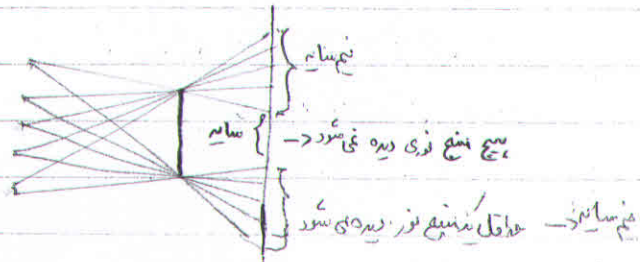 نیم سایه
سایه -> هیچ منبع نوری دیده نمی شود
نیم سایه -> حداقل یک منبع نور دیده می شود